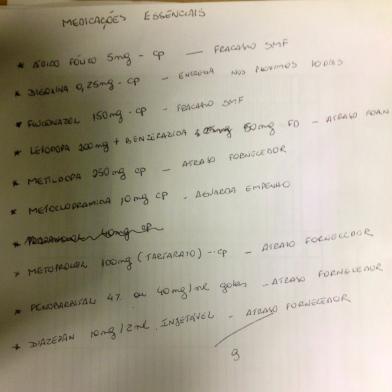 MEDICAÇÕES ESSENCIAIS
* ÁCIDO FÓLICO 5mg - cp — FRACASSO SMF
* DIGOXINA 0,25mg - cp - ENTREGA NOS PRÓXIMOS 10 DIAS
* FLUCONAZOL 150mg - cp - FRACASSO SMF
* LEVODOPA 200mg + BENZERAZIDA 50mg FD - ATRASO FORN
* METILDOPA 250mg cp - ATRASO FORNECEDOR
* METOCLOPRAMIDA 10mg cp - AGUARDA EMPENHO
* 40mg cp
* METOPROLOL 100mg (TARTARATO) - cp - ATRASO FORNECEDOR
* FENOBARBITAL 4% ou 40mg/ml gotas - ATRASO FORNECEDOR
* DIAZEPÁN 10mg/2ml INJETÁVEL - ATRASO FORNECEDOR
9